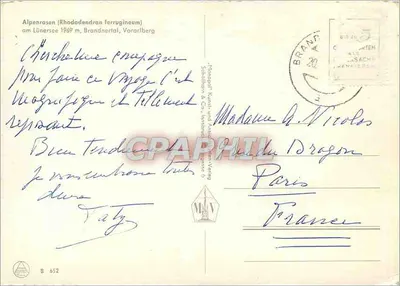 Alpenrosen (Rhododendron ferrugineum)
am Lünersee 1969 m, Brandnertal, Vorarlberg
Cherche une compagne
pour faire ce voyage c'est
magnifique et tellement
reposant.
Bien tendrement
Je vous embrasse toutes
deux
Taty
BRAND
Madame A. Nicolas
Rue du Dragon
Paris
France
CPAPHIL
B 612